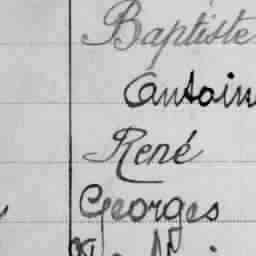 Baptiste
Antoin
René
Georges